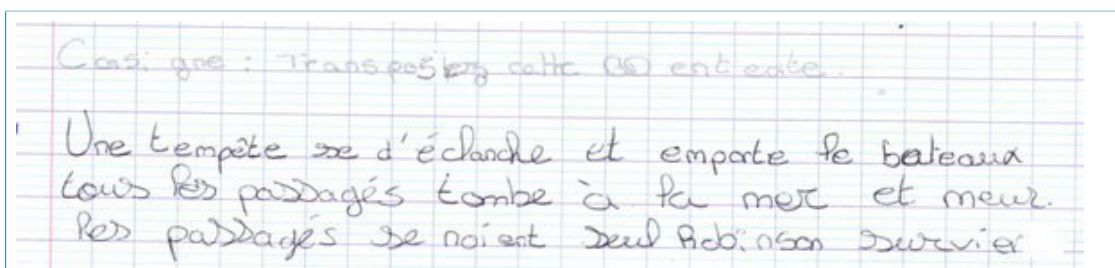 Consigne : Transposez cette BD en texte.
Une tempête se d'éclanche et emporte le bateaux
tous les passagés tombe à la mer et meur.
les passagés se noient seul Robinson survier